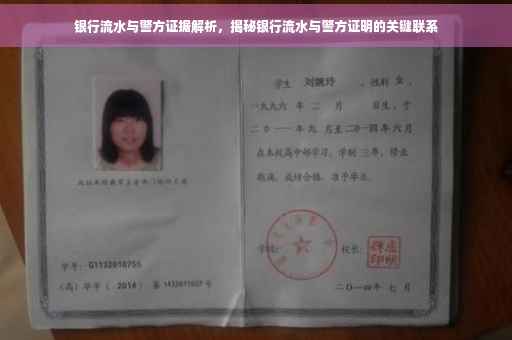 银行流水与警方证据解析，揭秘银行流水与警方证明的关键联系
学生 刘婉玲 ，性别 女 ，
一九九六 年 二 月 日生，于
二〇一一 年 九 月至 二〇一四 年 六 月
在本校高中部学习，学制 三 年，修业
期满，成绩合格，准予毕业。
学号：G1132010755
（高）毕字（ 2014 ）第 1432011027 号
学校：
校长：
二〇一四年 七 月